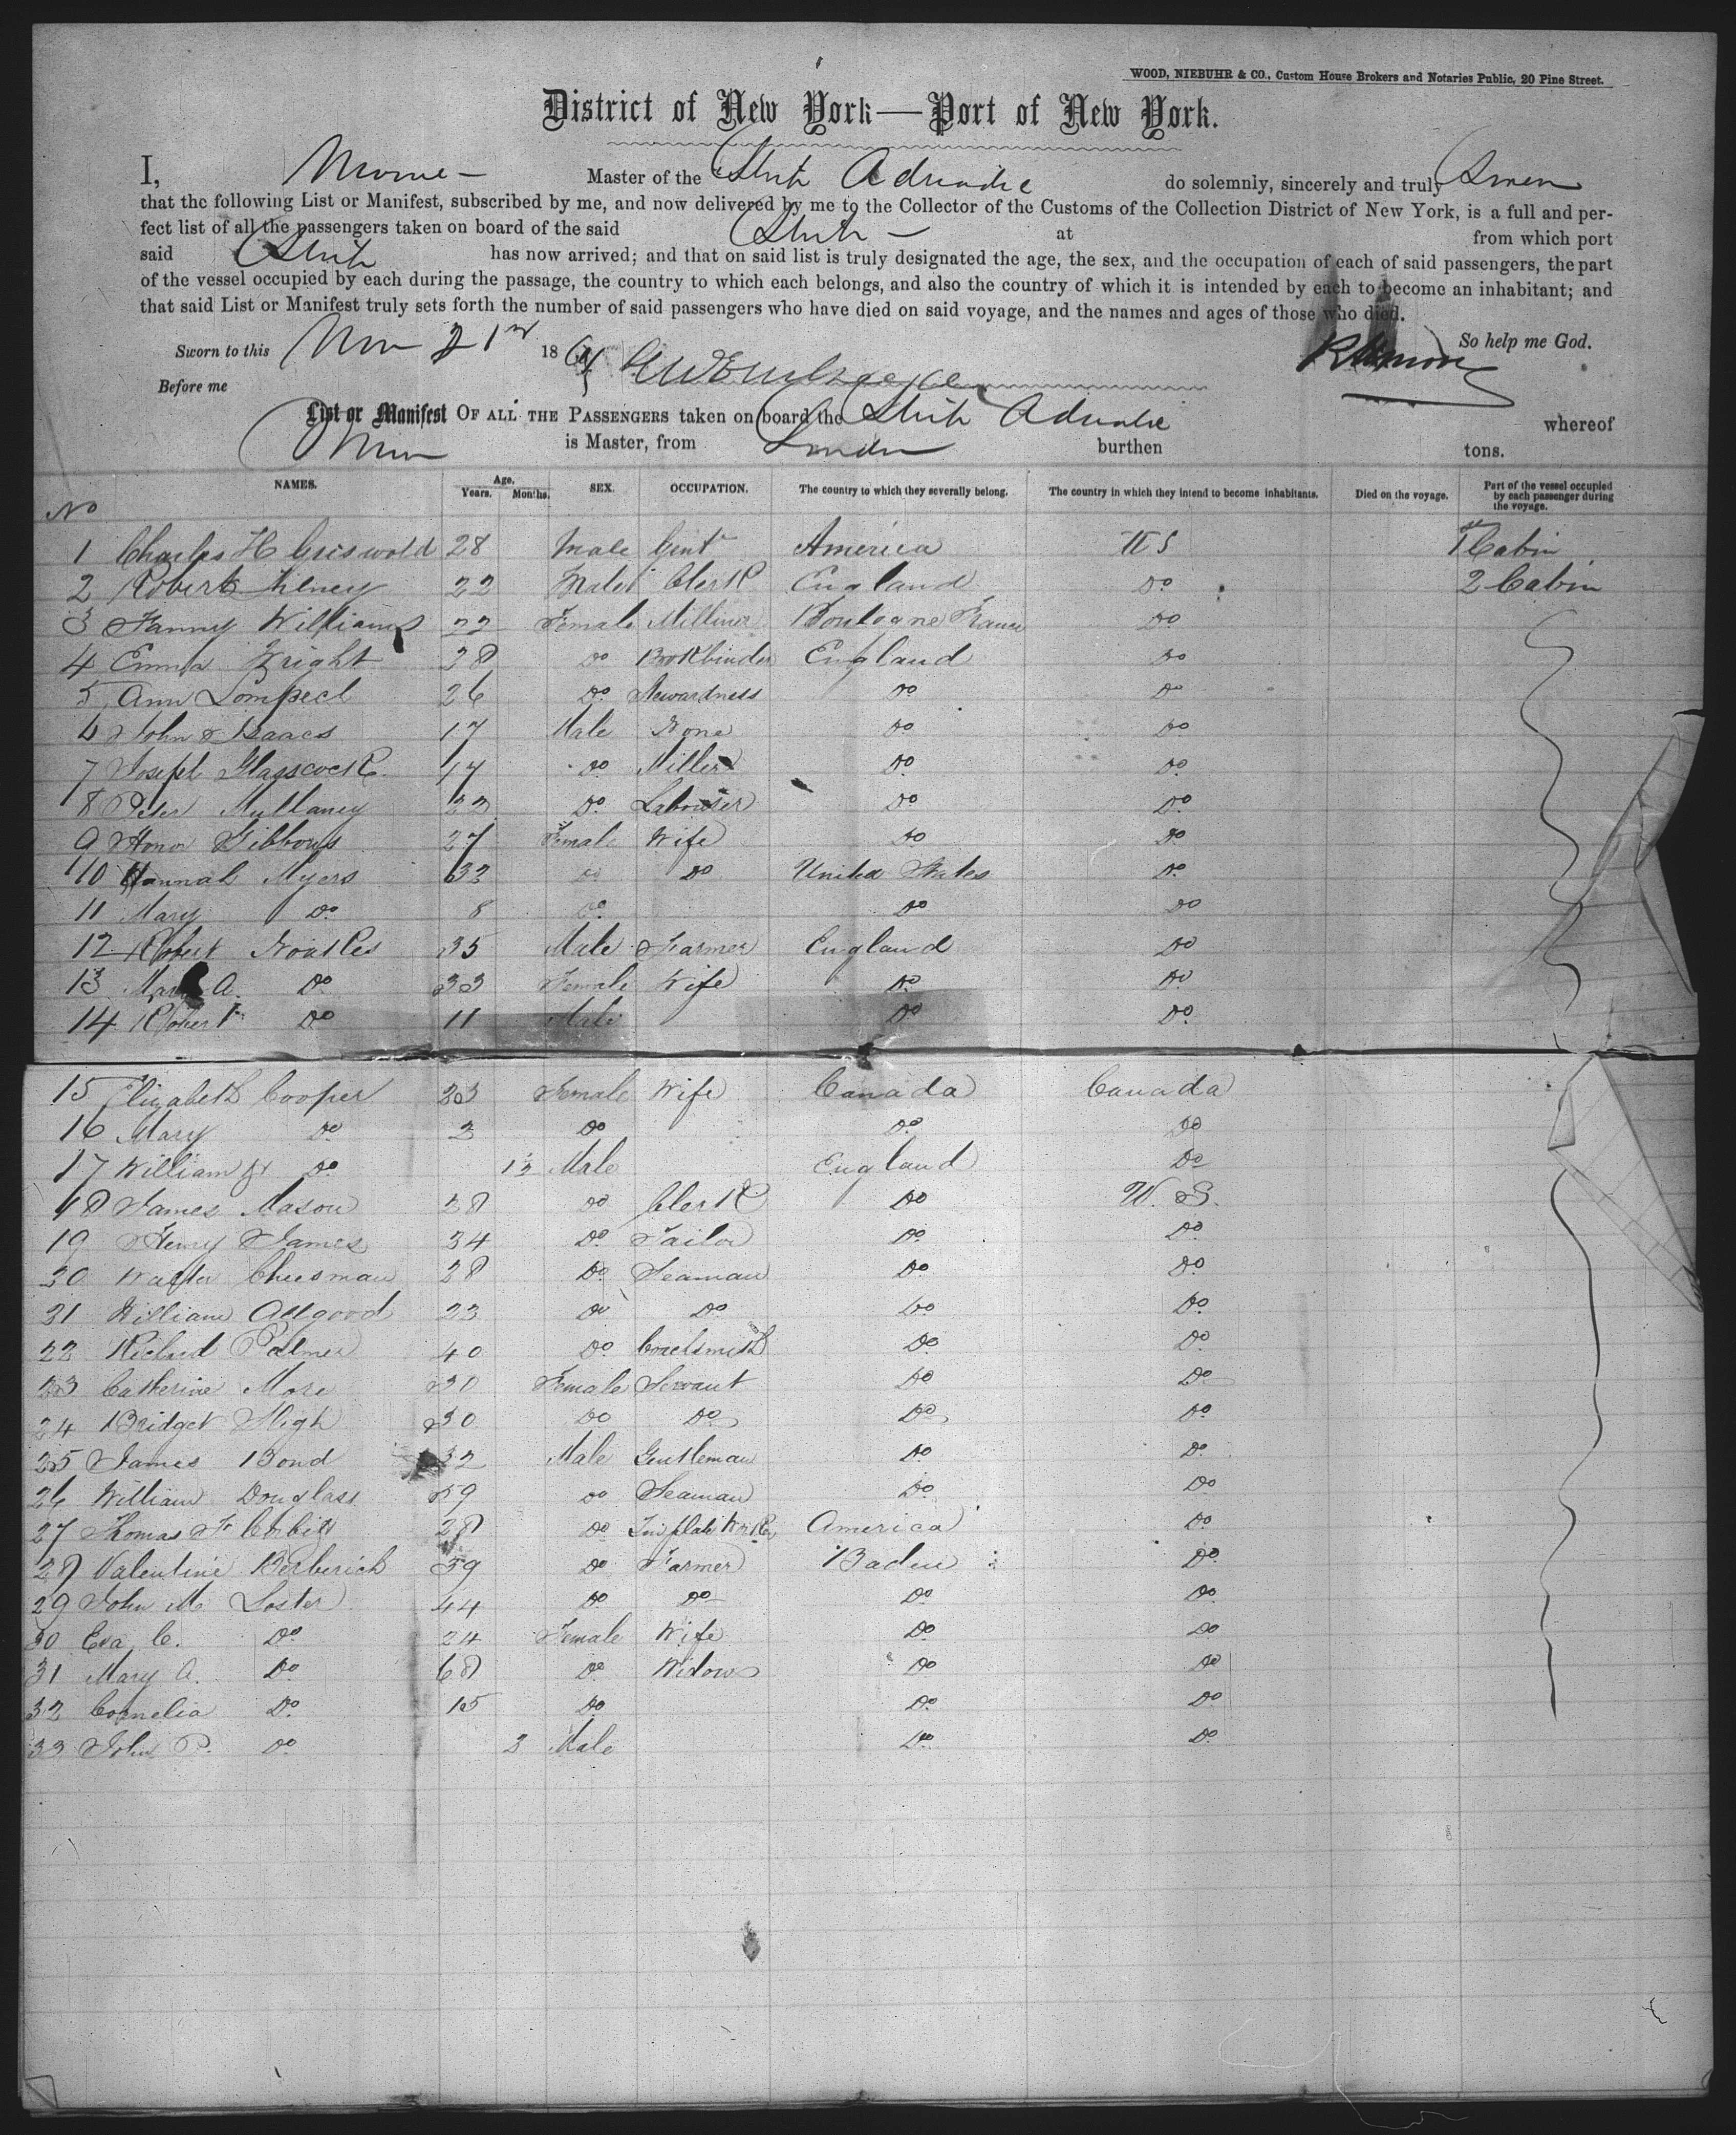 WOOD, NIEBUHR & CO., Custom House Brokers and Notaries Public, 20 Pine Street.
District of New York—Port of New York.
I, Master of the Ship Adriatic do solemnly, sincerely and truly Swear
that the following List or Manifest, subscribed by me, and now delivered by me to the Collector of the Customs of the Collection District of New York, is a full and per-
fect list of all the passengers taken on board of the said Ship at from which port
said Ship has now arrived; and that on said list is truly designated the age, the sex, and the occupation of each of said passengers, the part
of the vessel occupied by each during the passage, the country to which each belongs, and also the country of which it is intended by each to become an inhabitant; and
that said List or Manifest truly sets forth the number of said passengers who have died on said voyage, and the names and ages of those who died.
Sworn to this Nov 21st 186 So help me God.
Before me
List or Manifest OF ALL THE PASSENGERS taken on board the Ship Adriatic whereof
is Master, from London burthen tons.
No NAMES. Age. Years. Months. SEX. OCCUPATION. The country to which they severally belong. The country in which they intend to become inhabitants. Died on the voyage. Part of the vessel occupied by each passenger during the voyage.
1 Charles H Griswold 28 Male Gent America US 1st Cabin
2 Robert Tilney 22 Male Clerk England Do 2 Cabin
3 Fanny Williams 22 Female Milliner Boulogne France Do
4 Emma Wright 28 Do Bookbinder England Do
5 Ann 26 Do Stewardness Do Do
6 John & Isaacs 17 Male None Do Do
7 Joseph Glasscock 17 Do Miller Do Do
8 Peter Mullaney 22 Do Labourer Do Do
9 Honor Gibbons 27 Female Wife Do Do
10 Hannah Myers 32 Do Do United States Do
11 Mary Do 8 Do Do Do
12 Robert Noakes 35 Male Farmer England Do
13 Mary A. Do 33 Female Wife Do Do
14 Robert Do 11 Male Do Do
15 Elizabeth Cooper 23 Female Wife Canada Canada
16 Mary Do 2 Do Do Do
17 William Do 12 Male England Do
18 James Mason 28 Do Clerk Do U.S.
19 Henry James 34 Do Tailor Do Do
20 Walter Cheesman 28 Do Seaman Do Do
21 William Allgood 23 Do Do Do Do
22 Richard Palmer 40 Do Coachsmith Do Do
23 Catherine More 30 Female Servant Do Do
24 Bridget Sligh 30 Do Do Do Do
25 James Bond 32 Male Gentleman Do Do
26 William Douglass 59 Do Seaman Do Do
27 Thomas F Corbitt 28 Do Tinplate Worker America Do
28 Valentine Berberich 39 Do Farmer Baden Do
29 John M Loster 44 Do Do Do Do
30 Eva C. Do 24 Female Wife Do Do
31 Mary A. Do 68 Do Widow Do Do
32 Cornelia Do 15 Do Do Do
33 John P. Do 3 Male Do Do